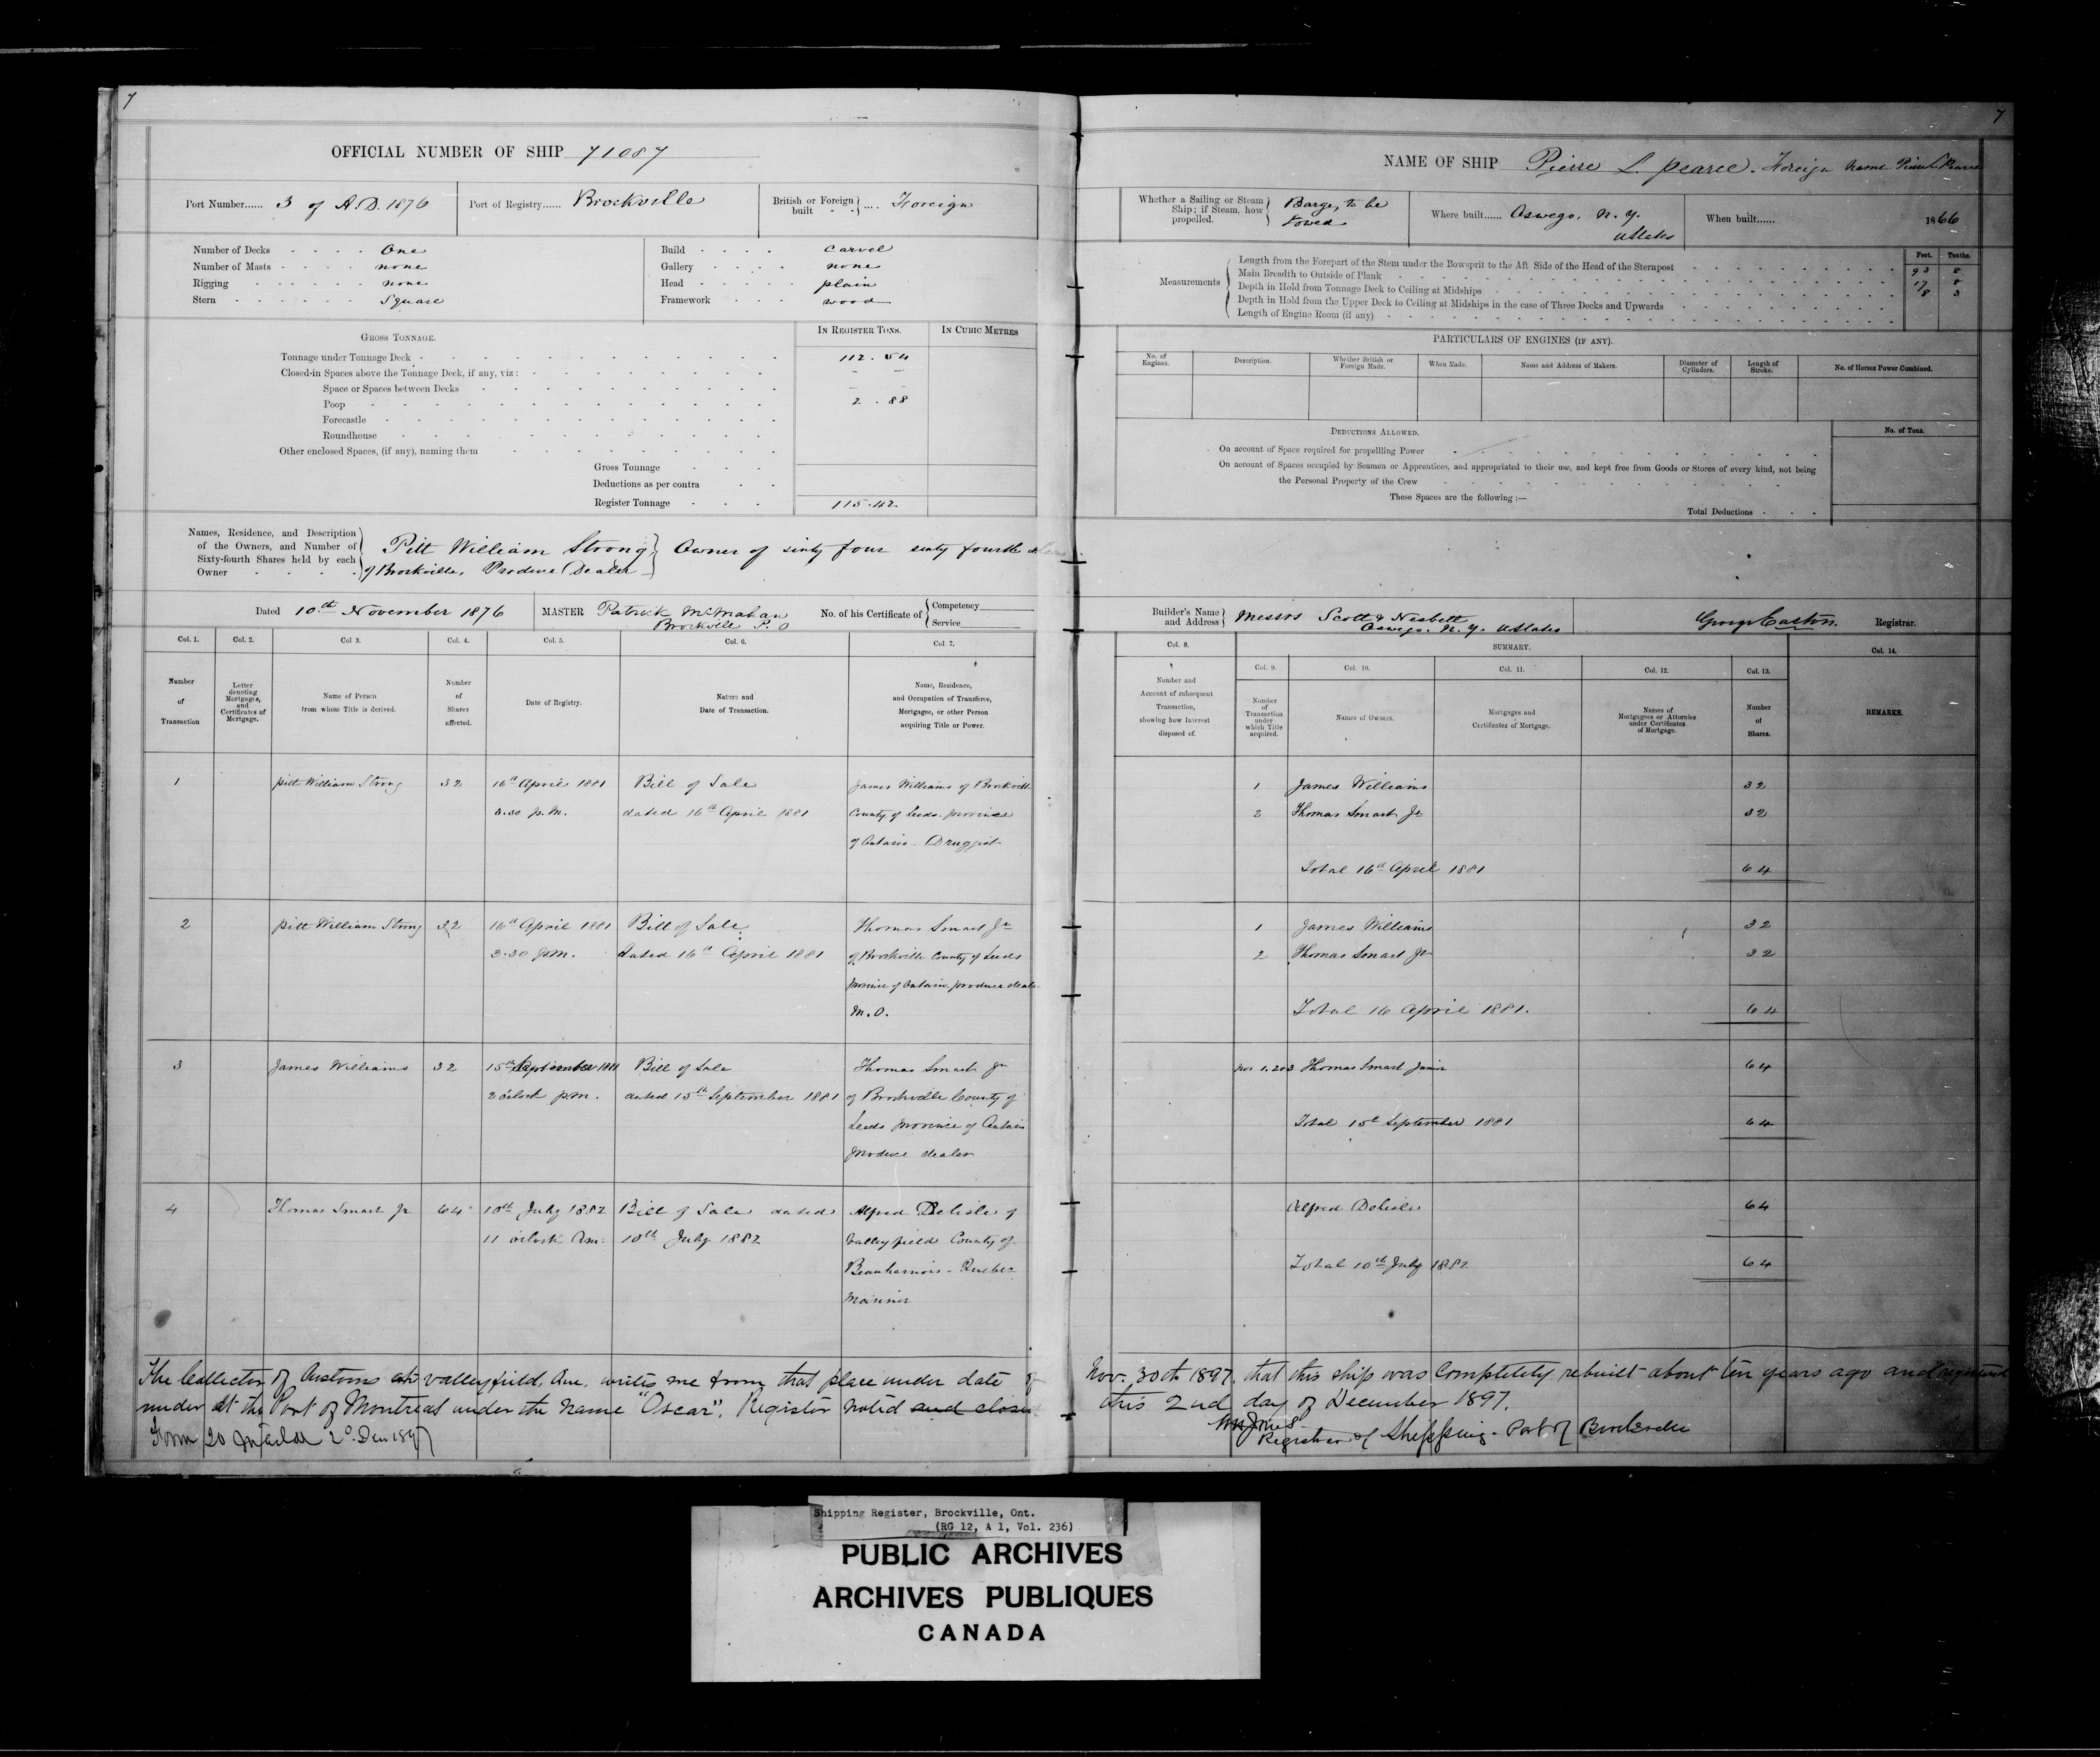 7
OFFICIAL NUMBER OF SHIP 71087
Port Number...... 3 of A.D. 1876
Port of Registry...... Brockville
British or Foreign built .... Foreign
Number of Decks One
Number of Masts none
Rigging none
Stern Square
Build Carvel
Gallery none
Head plain
Framework wood
GROSS TONNAGE.
IN REGISTER TONS.
IN CUBIC METRES
Tonnage under Tonnage Deck 112.54
Closed-in Spaces above the Tonnage Deck, if any, viz:
Space or Spaces between Decks
Poop 2.88
Forecastle
Roundhouse
Other enclosed Spaces, (if any), naming them
Gross Tonnage
Deductions as per contra
Register Tonnage 115.42
Names, Residence, and Description
of the Owners, and Number of
Sixty-fourth Shares held by each
Owner
Pitt William Strong
of Brockville, Produce Dealer
Owner of sixty four sixty fourth
Dated 10th November 1876
MASTER Patrick McMahan
Brockville P.O
No. of his Certificate of
Competency
Service
Col. 1. Col. 2. Col 3. Col. 4. Col. 5. Col. 6. Col. 7.
Number of Transaction
Letter denoting Mortgages, and Certificates of Mortgage.
Name of Person from whom Title is derived.
Number of Shares affected.
Date of Registry.
Nature and Date of Transaction.
Name, Residence, and Occupation of Transferee, Mortgagee, or other Person acquiring Title or Power.
1 Pitt William Strong 32 16th April 1881 Bill of Sale James Williams of Brockville
3.30 p.m. dated 16th April 1881 County of Leeds province
of Ontario. Druggist
2 Pitt William Strong 32 16th April 1881 Bill of Sale Thomas Smart Jr
3.30 p.m. dated 16th April 1881 of Brockville County of Leeds
province of Ontario, produce dealer
M.O.
3 James Williams 32 15th September 1881 Bill of Sale Thomas Smart Jr
2 oclock p.m. dated 15th September 1881 of Brockville County of
Leeds province of Ontario
produce dealer
4 Thomas Smart Jr 64 10th July 1882 Bill of Sale dated Alfred Delisle of
11 oclock Am. 10th July 1882 Valleyfield County of
Beauharnois - Quebec
Mariner
The Collector of Customs at Valleyfield, Que, writes me from that place under date of
under at the Port of Montreal under the name "Oscar". Register noted and closed
Form 20
7
NAME OF SHIP Pierre L. Pearce. Foreign Name
Whether a Sailing or Steam Ship; if Steam, how propelled.
Barge, to be
towed
Where built...... Oswego, N.Y.
UStates
When built...... 1866
Measurements
Feet. Tenths.
Length from the Forepart of the Stem under the Bowsprit to the Aft Side of the Head of the Sternpost 93 8
Main Breadth to Outside of Plank 17 8
Depth in Hold from Tonnage Deck to Ceiling at Midships 8 3
Depth in Hold from the Upper Deck to Ceiling at Midships in the case of Three Decks and Upwards
Length of Engine Room (if any)
PARTICULARS OF ENGINES (IF ANY).
No. of Engines.
Description.
Whether British or Foreign Made.
When Made.
Name and Address of Makers.
Diameter of Cylinders.
Length of Stroke.
No. of Horses Power Combined.
DEDUCTIONS ALLOWED.
No. of Tons.
On account of Space required for propelling Power
On account of Spaces occupied by Seamen or Apprentices, and appropriated to their use, and kept free from Goods or Stores of every kind, not being
the Personal Property of the Crew
These Spaces are the following:—
Total Deductions
Builder's Name and Address
Messrs Scott & Nesbett
Oswego. N.Y. UStates
George Easton. Registrar.
Col. 8.
SUMMARY.
Col. 14.
Col. 9. Col. 10. Col. 11. Col. 12. Col. 13.
Number and Account of subsequent Transaction, showing how Interest disposed of.
Number of Transaction under which Title acquired.
Names of Owners.
Mortgages and Certificates of Mortgage.
Names of Mortgagees or Attornies under Certificates of Mortgage.
Number of Shares.
REMARKS.
1 James Williams 32
2 Thomas Smart Jr 32
Total 16th April 1881 64
1 James Williams 32
2 Thomas Smart Jr 32
Total 16 April 1881. 64
Nos 1.2&3 Thomas Smart Junior 64
Total 15th September 1881 64
Alfred Delisle 64
Total 10th July 1882 64
Nov. 30th 1897, that this ship was completely rebuilt about ten years ago and
this 2nd day of December 1897.
Registrar of Shipping. Port of Brockville
Shipping Register, Brockville, Ont.
(RG 12, A 1, Vol. 236)
PUBLIC ARCHIVES
ARCHIVES PUBLIQUES
CANADA